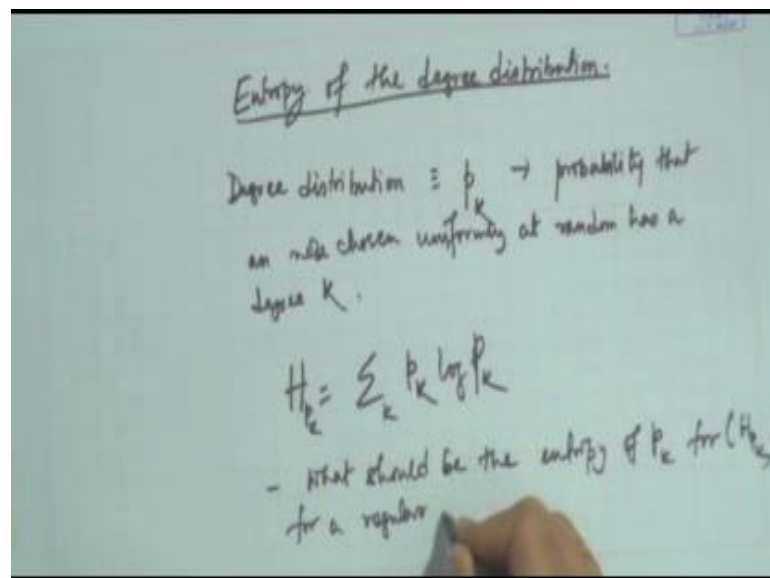 Entropy of the degree distribution.
Degree distribution ≡ p_k → probability that
an node chosen uniformly at random has a
degree K.
H_{p_k} = Σ_k p_k log p_k
- What should be the entropy of p_k for (H_{p_k})
for a regular